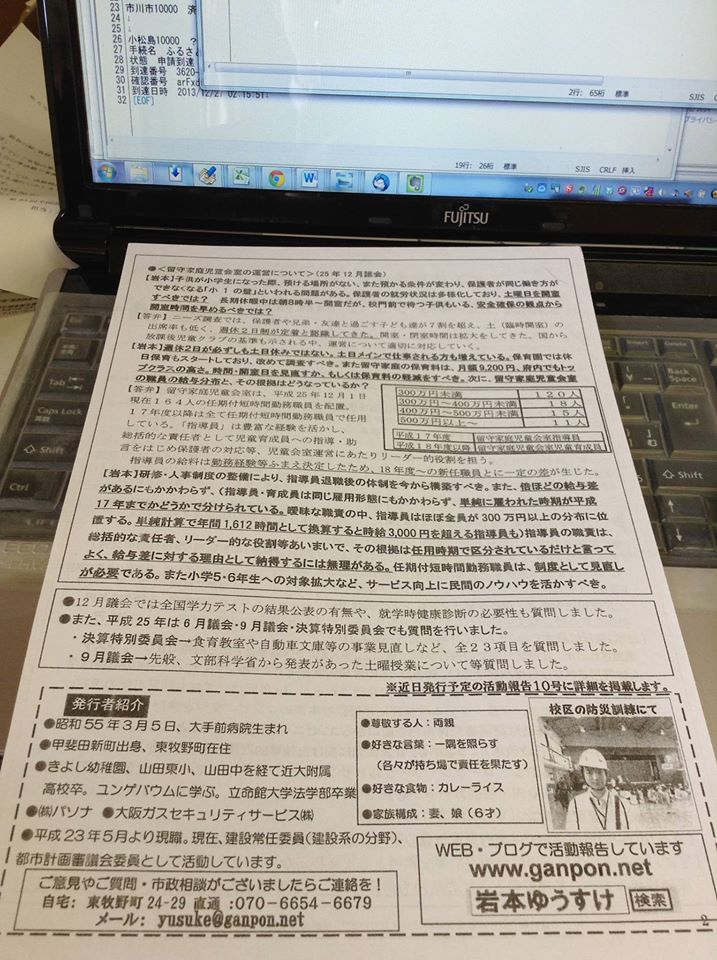 23 市川市10000 済
24 ↓
25 ↓
26 小松島10000 ?
27 手続名 ふるさと
28 状態 申請到達
29 到達番号 3620-
30 確認番号 arFxd
31 到達日時 2013/12/27 02:15:51↓
32 [EOF]
2行: 65桁 標準
SJIS
プライバシー
19行: 26桁 標準
SJIS CRLF 挿入
FUJITSU
●<留守家庭児童会室の運営について>(25年12月議会)
【岩本】子供が小学生になった際、預ける場所がない、また預かる条件が変わり、保護者が同じ働き方が
できなくなる「小1の壁」といわれる問題がある。保護者の就労状況は多様化しており、土曜日を開室
すべきでは? 長期休暇中は朝8時半~開室だが、校門前で待つ子供もいる、安全確保の観点から
開室時間を早めるべきでは?
【答弁】ニーズ調査では、保護者や兄弟・友達と過ごす子ども達が7割を超え、土(臨時開室)の
出席率も低く、週休2日制が定着と認識してきた。開室・閉室時間は拡大をしてきた。国から
放課後児童クラブの基準も示される中、運営について適切に対応していく。
【岩本】週休2日が必ずしも土日休みではない。土日メインで仕事される方も増えている。保育園では休
日保育もスタートしており、改めて調査すべき。また留守家庭の保育料は、月額9,200円、府内でもト
ップクラスの高さ。時間・開室日を見直すか、もしくは保育料の軽減をすべき。次に、留守家庭児童会室
の職員の給与分布と、その根拠はどうなっているか?
【答弁】留守家庭児童会室は、平成25年12月1日
現在164人の任期付短時間勤務職員を配置。
17年度以降は全て任期付短時間勤務職員で任用
している。「指導員」は豊富な経験を活かし、
総括的な責任者として児童育成への指導・助
言をはじめ保護者の対応等、児童会室運営にあたりリーダー的役割を担う。
指導員の給料は勤務経験等ふまえ決定したため、18年度~の新任職員とに一定の差が生じた。
300万円未満 120人
300万円~400万円未満 18人
400万円~500万円未満 15人
500万円以上~ 11人
平成17年度 留守家庭児童会室指導員
平成18年度以降 留守家庭児童会室育成員
【岩本】研修・人事制度の整備により、指導員退職後の体制を今から構築すべき。また、倍ほどの給与差
があるにもかかわらず、(指導員・育成員は同じ雇用形態にもかかわらず、単純に雇われた時期が平成
17年までかどうかで分けられている。曖昧な職責の中、指導員はほぼ全員が300万円以上の分布に位
置する。単純計算で年間1,612時間として換算すると時給3,000円を超える指導員も)指導員の職責は、
総括的な責任者、リーダー的な役割等あいまいで、その根拠は任用時期で区分されているだけと言って
よく、給与差に対する理由として納得するには無理がある。任期付短時間勤務職員は、制度として見直し
が必要である。また小学5・6年生への対象拡大など、サービス向上に民間のノウハウを活かすべき。
●12月議会では全国学力テストの結果公表の有無や、就学時健康診断の必要性も質問しました。
●また、平成25年は6月議会・9月議会・決算特別委員会でも質問を行いました。
・決算特別委員会→食育教室や自動車文庫等の事業見直しなど、全23項目を質問しました。
・9月議会→先般、文部科学省から発表があった土曜授業について等質問しました。
※近日発行予定の活動報告10号に詳細を掲載します。
発行者紹介
●昭和55年3月5日、大手前病院生まれ
●甲斐田新町出身、東牧野町在住
●きよし幼稚園、山田東小、山田中を経て近大附属
高校卒。ユンゲバウムに学ぶ。立命館大学法学部卒業
●㈱パソナ ●大阪ガスセキュリティサービス㈱
●平成23年5月より現職。現在、建設常任委員(建設系の分野)、
都市計画審議会委員として活動しています。
●尊敬する人:両親
●好きな言葉:一隅を照らす
(各々が持ち場で責任を果たす)
●好きな食物:カレーライス
●家族構成:妻、娘(6才)
校区の防災訓練にて
ご意見やご質問・市政相談がございましたらご連絡を!
自宅: 東牧野町 24-29 直通:070-6654-6679
メール: yusuke@ganpon.net
WEB・ブログで活動報告しています
www.ganpon.net
岩本ゆうすけ 検索
2
Caps Lock
Shift
Ctrl
Fn